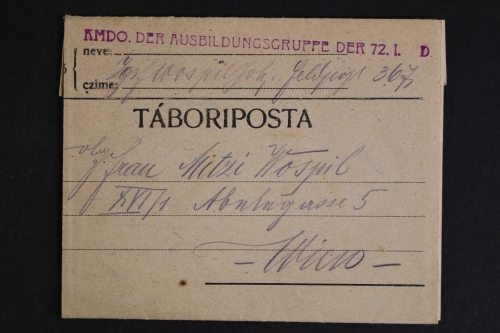 KMDO. DER AUSBILDUNGSGRUPPE DER 72. I. D.
neve:
czime: Wospil Feldpost 367
TÁBORIPOSTA
Frau Mitzi Wospil
XVI/1 Abelegasse 5
– Wien –